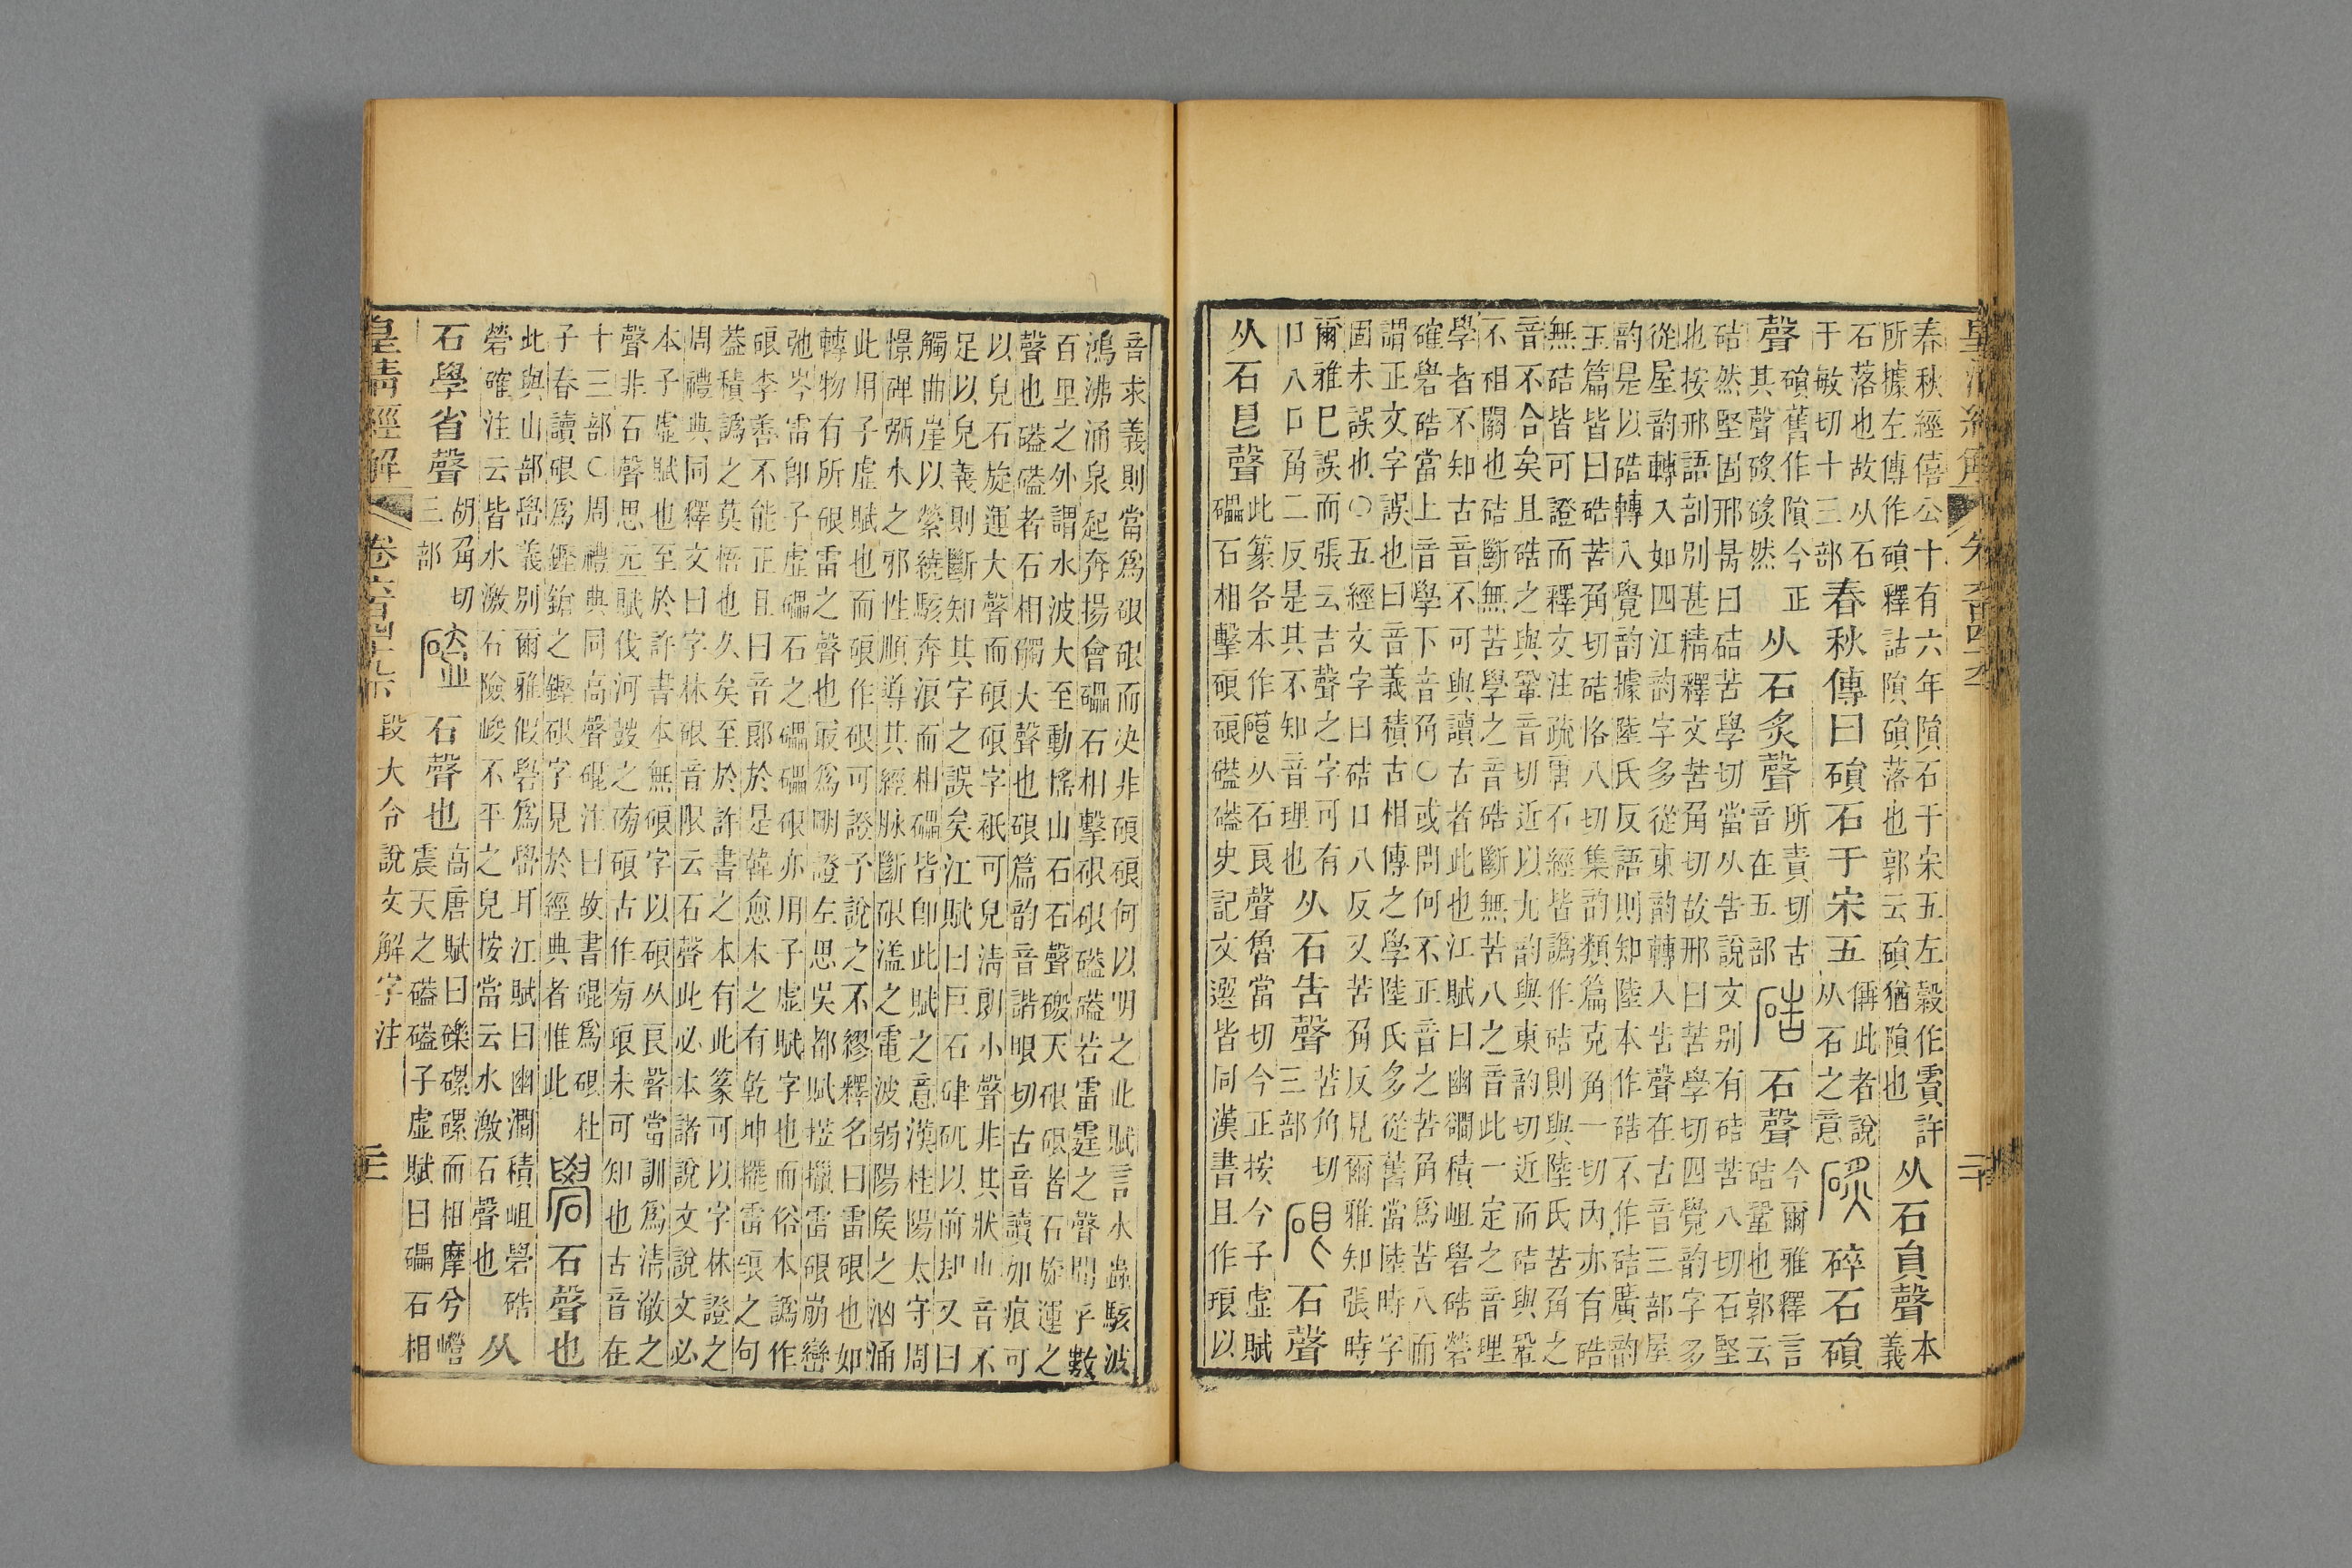 春秋經僖公十有六年隕石于宋五左穀作霣許
所據左傳作磒釋詁隕磒落也郭云磒猶隕也
从石員聲
本
義
石落也故从石
于敏切十三部
春秋傳曰磒石于宋五
偁此者說
从石之意
碎石磒
聲
磒舊作隕今正
其聲然
从石炙聲
所責切古
音在五部
硞
石聲
今爾雅釋言
硈鞏也郭云
硈然堅固邢昺曰硈苦學切當从告說文別有硈苦八切石堅
也按邢語剖別甚精釋文苦角切故邢曰苦學切四覺韵字多
從屋韵轉入如四江韵字多從東韵轉入告聲在古音三部屋
韵是以硞轉入覺韵據陸氏反語則知陸本作硞不作硈廣韵
玉篇皆曰硞苦角切硈恪八切集韵類篇克角一切內亦有硞
無硈皆可證而釋文注疏唐石經皆譌作硈則與陸氏苦角之
音不合矣且硞之與鞏音切近以九韵與東韵切近而硈與鞏
不相關也硈斷無苦學之音硞斷無苦八之音此一定之音理
學者不知古音不可與讀古者此也江賦曰幽澗積岨礐硞礐
確礐硞當上音學下音角○或問何不正音之苦角爲苦八而
謂正文字誤也曰音義積古相傳之學陸氏多從舊當陸時字
固未誤也○五經文字曰硈口八反又苦角反見爾雅知張時
爾雅巳誤而張云吉聲之字可有
口八口角二反是其不知音理也
从石告聲
苦角切
三部
硍
石聲
从石㫐聲
此篆各本作硠从石良聲魯當切今正按今子虛賦
礧石相擊硠硠磕磕史記文選皆同漢書且作琅以
音求義則當爲硍硍而決非硠硠何以明之此賦言水蟲駭波
鴻沸涌泉起奔揚會礧石相擊硍硍磕磕若雷霆之聲聞乎數
百里之外謂水波大至動搖山石石聲磤天硍硍者石旋運之
聲也磕磕者石相觸大聲也硍篇韵音諧眼切古音讀如痕可
以皃石旋運大聲而硠硠字衹可皃淸朗小聲非其狀也音不
足以皃義則斷知其字之誤矣江賦曰巨石硉矹以前却又曰
觸曲崖以縈繞駭奔浪而相礧皆卽此賦之意漢桂陽太守周
憬碑弱水之邪性順導其經脉斷硍溘之電波弱陽矦之洶涌
此用子虛賦也而硠作硍可證子說之不繆釋名曰雷硍也如
轉物有所硍雷之聲也最爲明證左思吳都賦拉擸雷硍崩巒
弛岑雷卽子虛礧石之礧硍亦用子虛賦字也而俗本譌作
硠李善不能正且曰音郎於是韓愈本之有乾坤擺雷硠之句
葢積譌之莫悟也久矣至於許書之本有此篆可以字林證之
周禮典同釋文曰字林硍音限云石聲此必本諸說文說文必
本子虛賦也至於許書本無硠字以硠从良聲當訓爲淸澈之
聲非石聲思元賦伐河鼓之磅硠古作旁琅未可知也古音在
十三部○周禮典同高聲䃂注曰故書䃂爲硍杜
子春讀硍爲鏗鎗之鏗硍字見於經典者惟此
礐
石聲也
此與山部嶨義別爾雅假礐爲嶨耳江賦曰幽澗積岨礐硞
礐確注云皆水激石險峻不平之皃按當云水激石聲也
从
石學省聲
胡角切
三部
磕
石聲也
高唐賦曰礫磥磥而相摩兮巆
震天之磕磕子虛賦曰礧石相
皇清經解
卷六百四十九下
段大令說文解字注